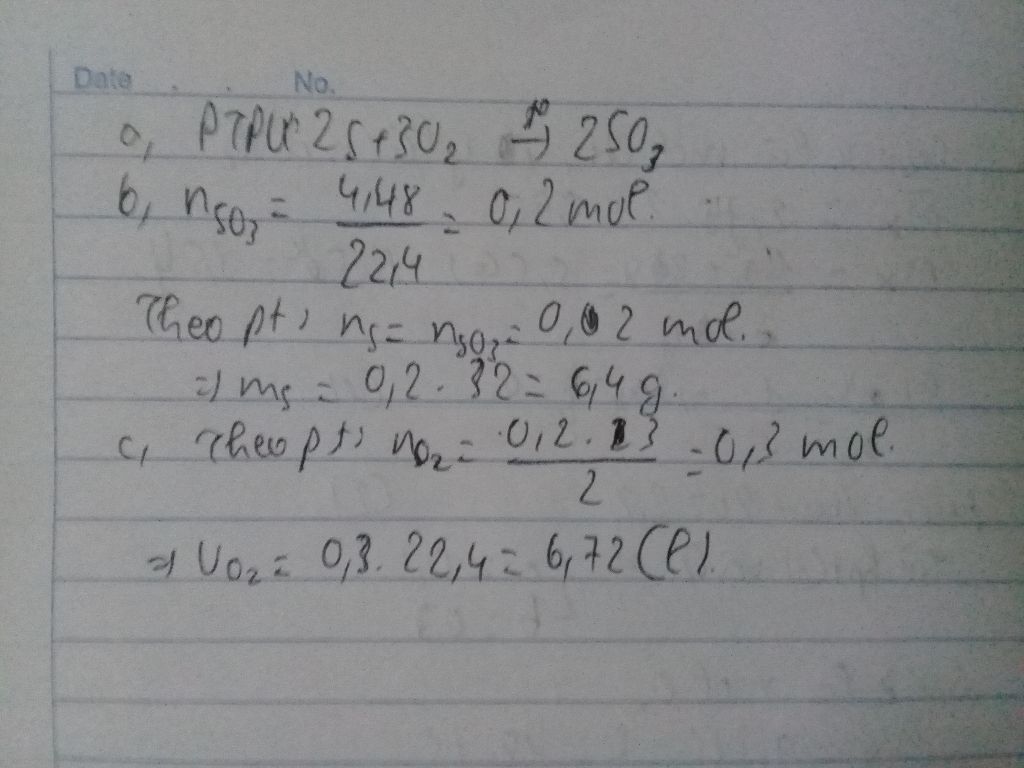 Date . . No.
a, PTPƯ: 2S+3O₂ →(t°) 2SO₃
b, nSO₃ = 4,48/22,4 = 0,2 mol.
Theo pt: nS = nSO₃ = 0,2 mol.
=) mS = 0,2 . 32 = 6,4 g.
c, Theo pt: nO₂ = 0,2 . 3/2 = 0,3 mol.
=) VO₂ = 0,3 . 22,4 = 6,72 (l).